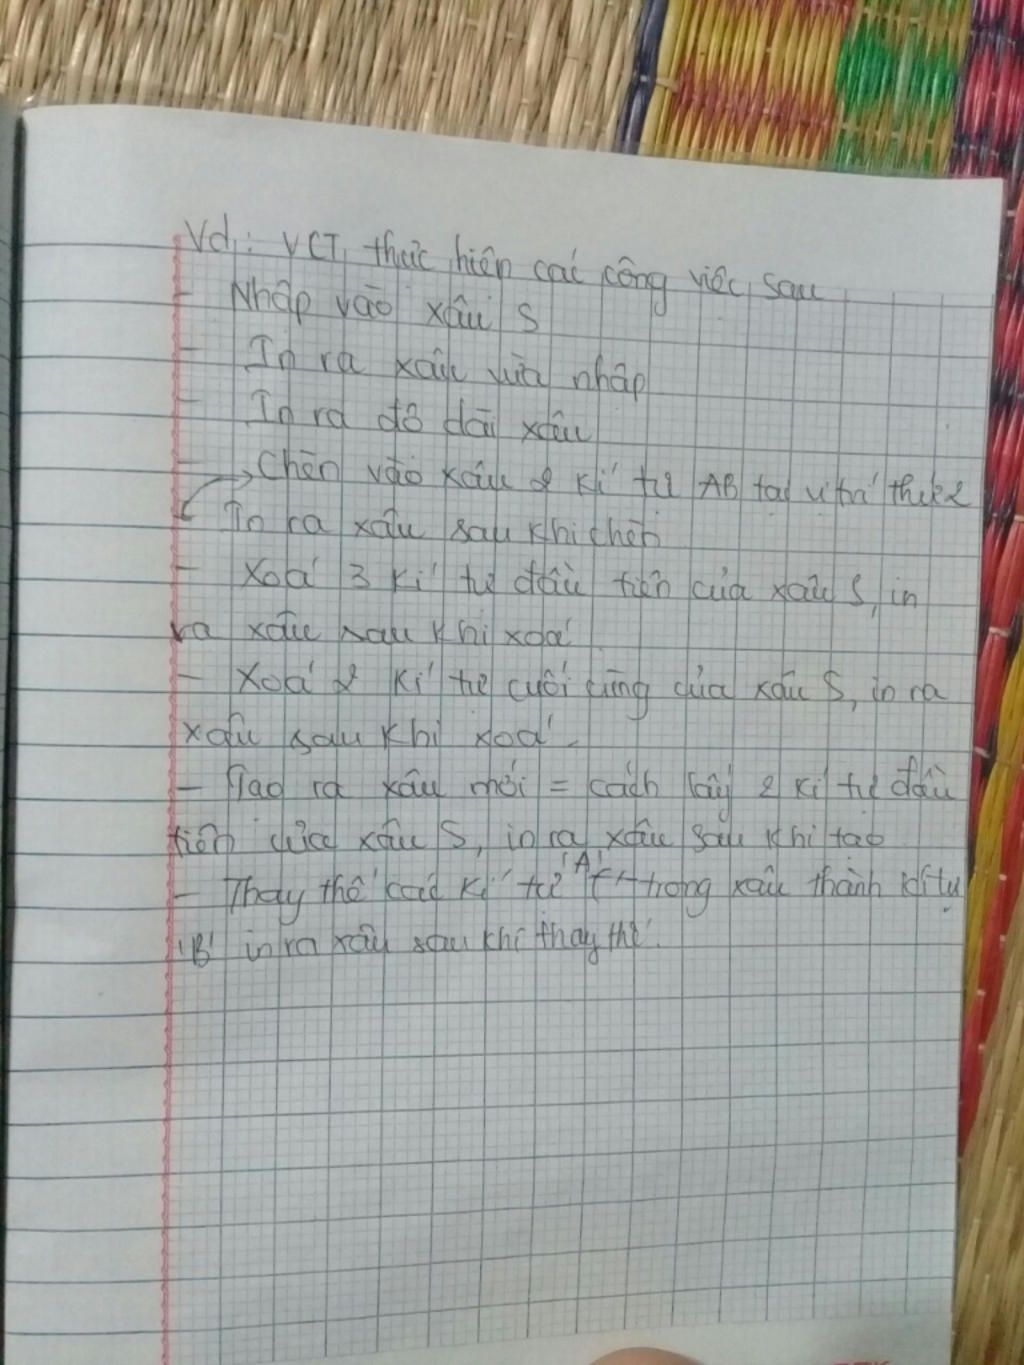 Vd: VCT thực hiện các công việc sau
- Nhập vào xâu S
- In ra xâu vừa nhập
- In ra độ dài xâu
- Chèn vào xâu 2 kí tự AB tại vị trí thứ 2
In ra xâu sau khi chèn
- Xoá 3 kí tự đầu tiên của xâu S, in
ra xâu sau khi xoá
- Xoá 2 kí tự cuối cùng của xâu S, in ra
xâu sau khi xoá.
- Tạo ra xâu mới = cách lấy 2 kí tự đầu
tiên của xâu S, in ra xâu sau khi tạo
- Thay thế các kí tự 'A' trong xâu thành kí tự
'B' in ra xâu sau khi thay thế.